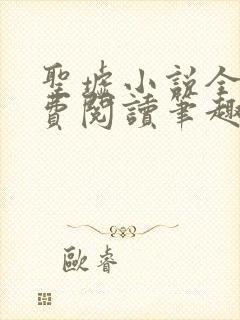 聖墟小說全
費閱讀筆趣
歐睿